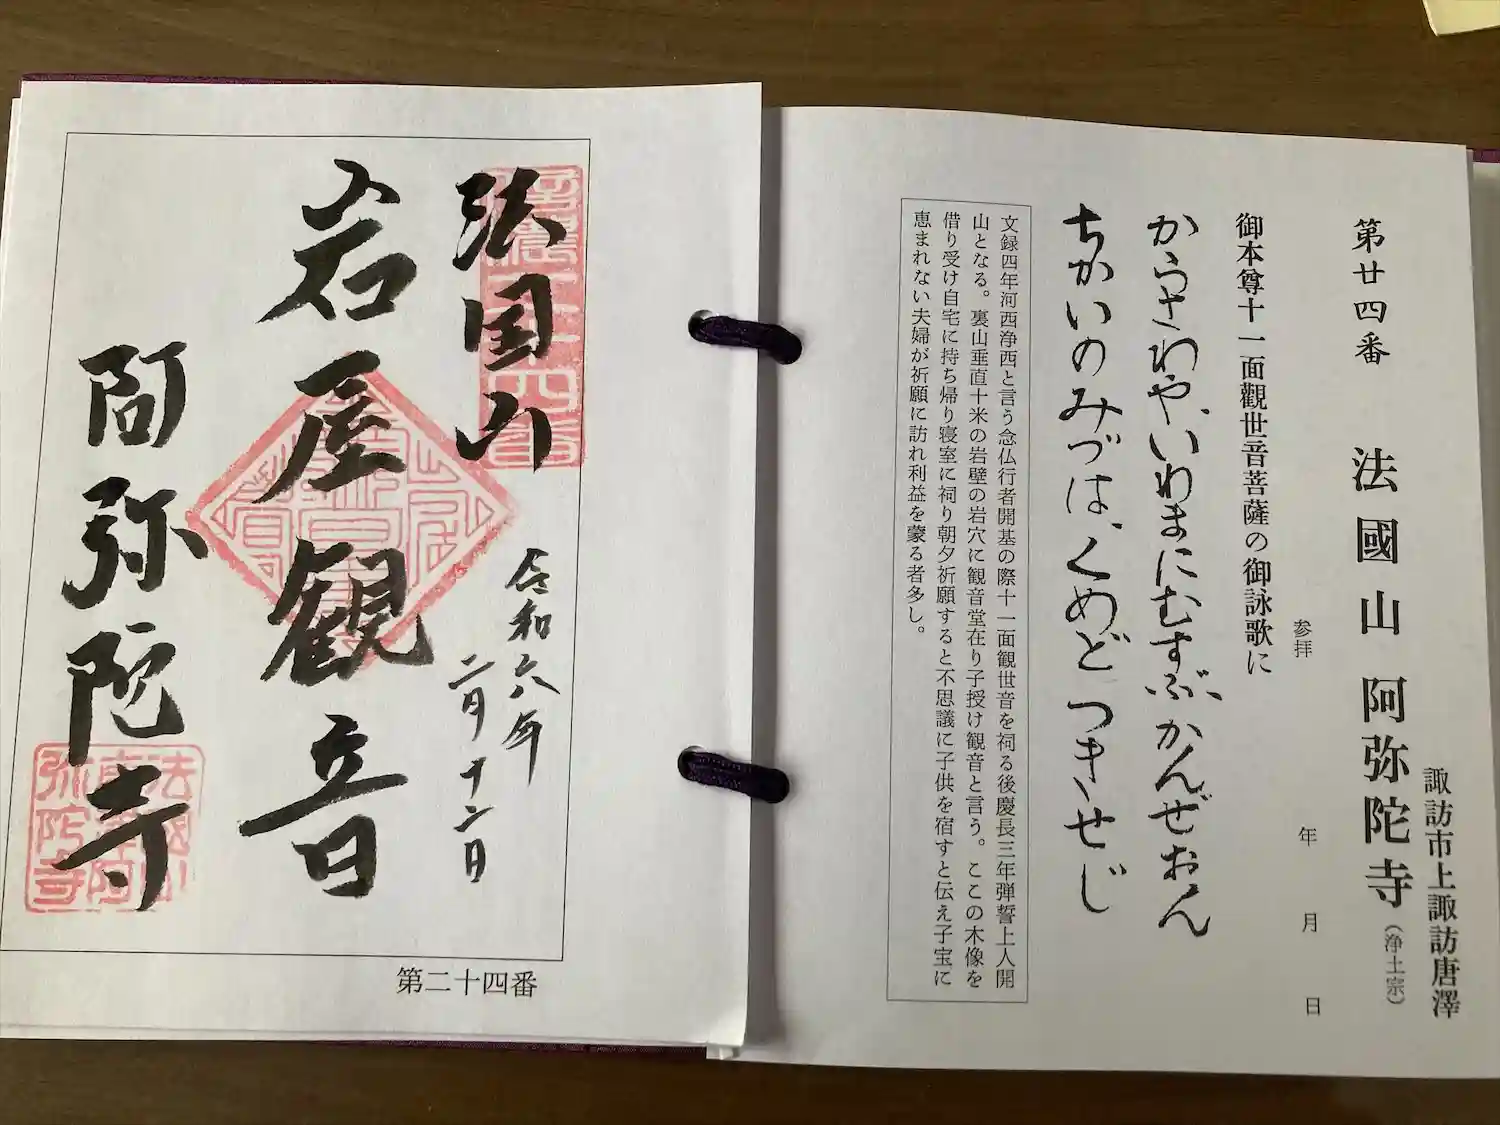 諏訪市上諏訪唐澤
第廿四番 法國山 阿弥陀寺 (浄土宗)
参拝 年 月 日
御本尊十一面觀世音菩薩の御詠歌に
からさわや、いわまにむすぶ、かんぜおん
ちかいのみづは、くめどつきせじ
文録四年河西浄西と言う念仏行者開基の際十一面観世音を祠る後慶長三年弾誓上人開
山となる。裏山垂直十米の岩壁の岩穴に観音堂在り子授け観音と言う。ここの木像を
借り受け自宅に持ち帰り寝室に祠り朝夕祈願すると不思議に子供を宿すと伝え子宝に
恵まれない夫婦が祈願に訪れ利益を蒙る者多し。
法国山
令和六年
二月十二日
岩屋観音
阿弥陀寺
法國山
唐澤阿
弥陀寺
第二十四番